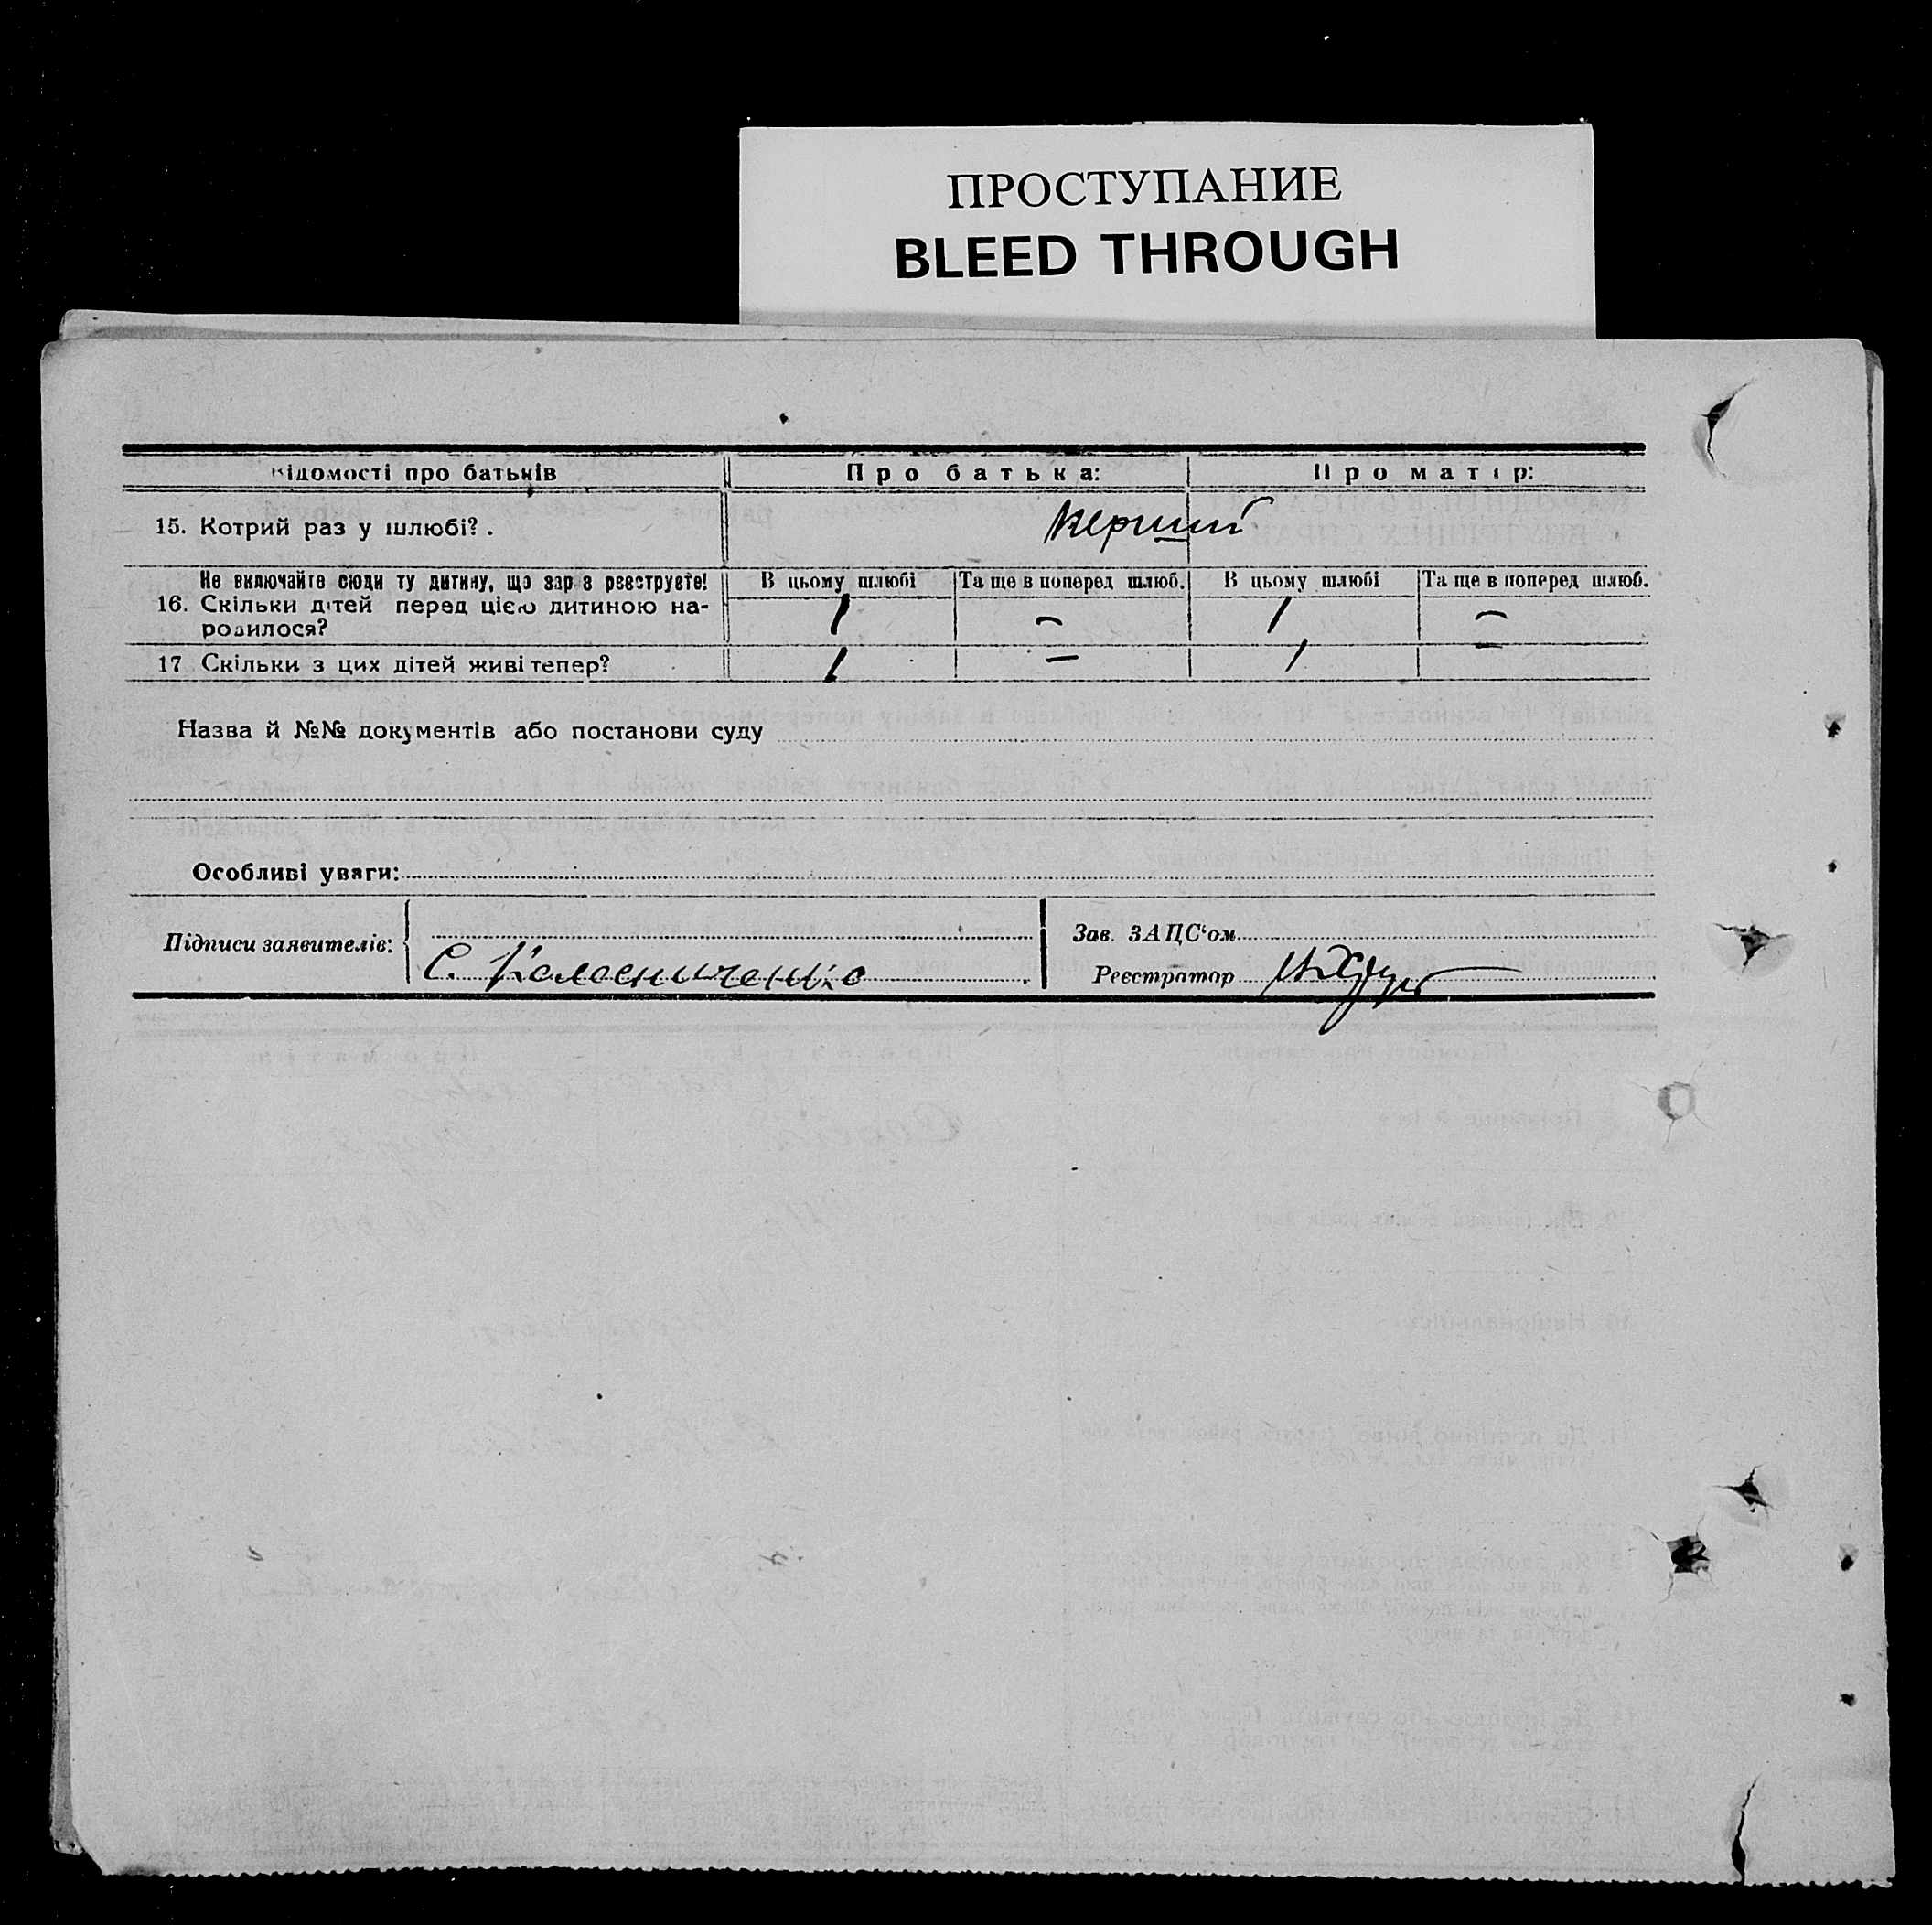 ПРОСТУПАНИЕ
BLEED THROUGH
Відомості про батьків
Про батька:
Про матір:
15. Котрий раз у шлюбі?.
перший
Не включайте сюди ту дитину, що зараз реєструєте!
В цьому шлюбі
Та ще в поперед шлюб.
В цьому шлюбі
Та ще в поперед шлюб.
16. Скільки дітей перед цією дитиною на-
родилося?
1
–
1
–
17 Скільки з цих дітей живі тепер?
1
–
1
–
Назва й №№ документів або постанови суду
Особливі уваги:
Підписи заявителів:
С. Колесниченко
Зав. ЗАЦС‘ом
Реєстратор